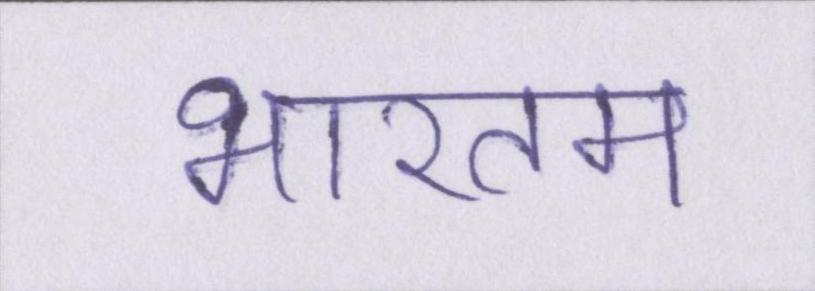 भारतम